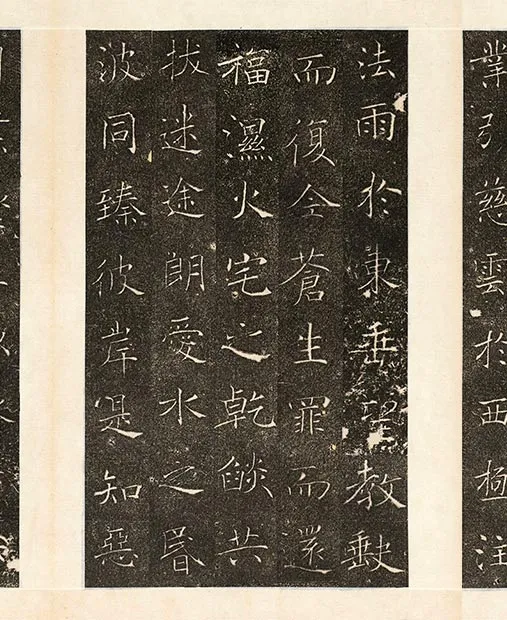 業引慈雲於西極注
法雨於東垂聖教缺
而復全蒼生罪而還
福濕火宅之乾燄共
拔迷途朗愛水之昬
波同臻彼岸是知惡